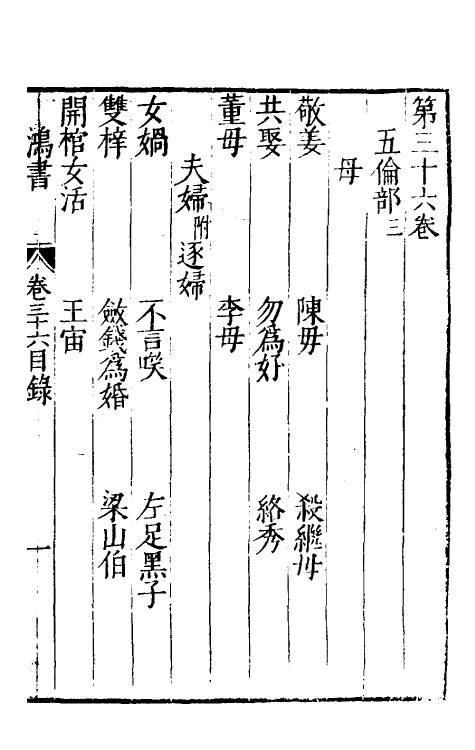 第三十六卷
五倫部三
母
敬姜　陳母　殺繼母
共娶　勿為好　絡秀
董母　李母
夫婦附逐婦
女媧　不言咲　左足黑子
雙梓　斂錢為婚　梁山伯
開棺女活　王宙
鴻書　卷三十六目錄　一